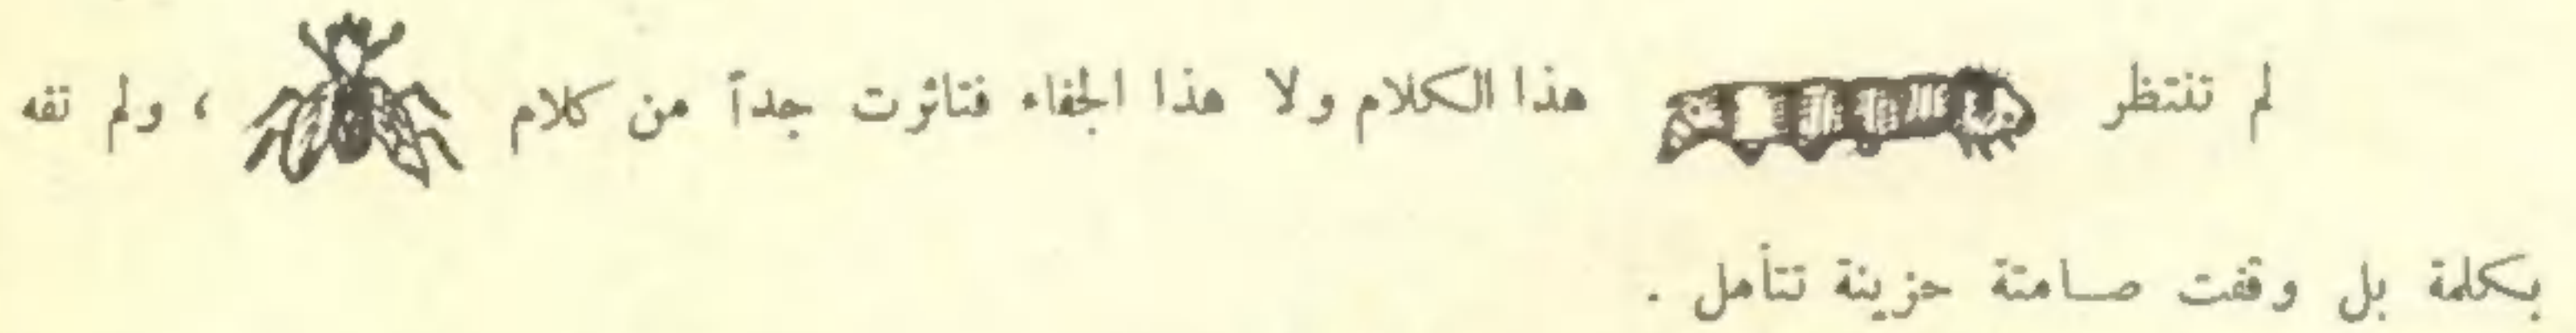 لم تنتظر هذا الكلام ولا هذا الجفاء فتاثرت جداً من كلام ، ولم تفه
بكلمة بل وقفت صامتة حزينة تتأمل .